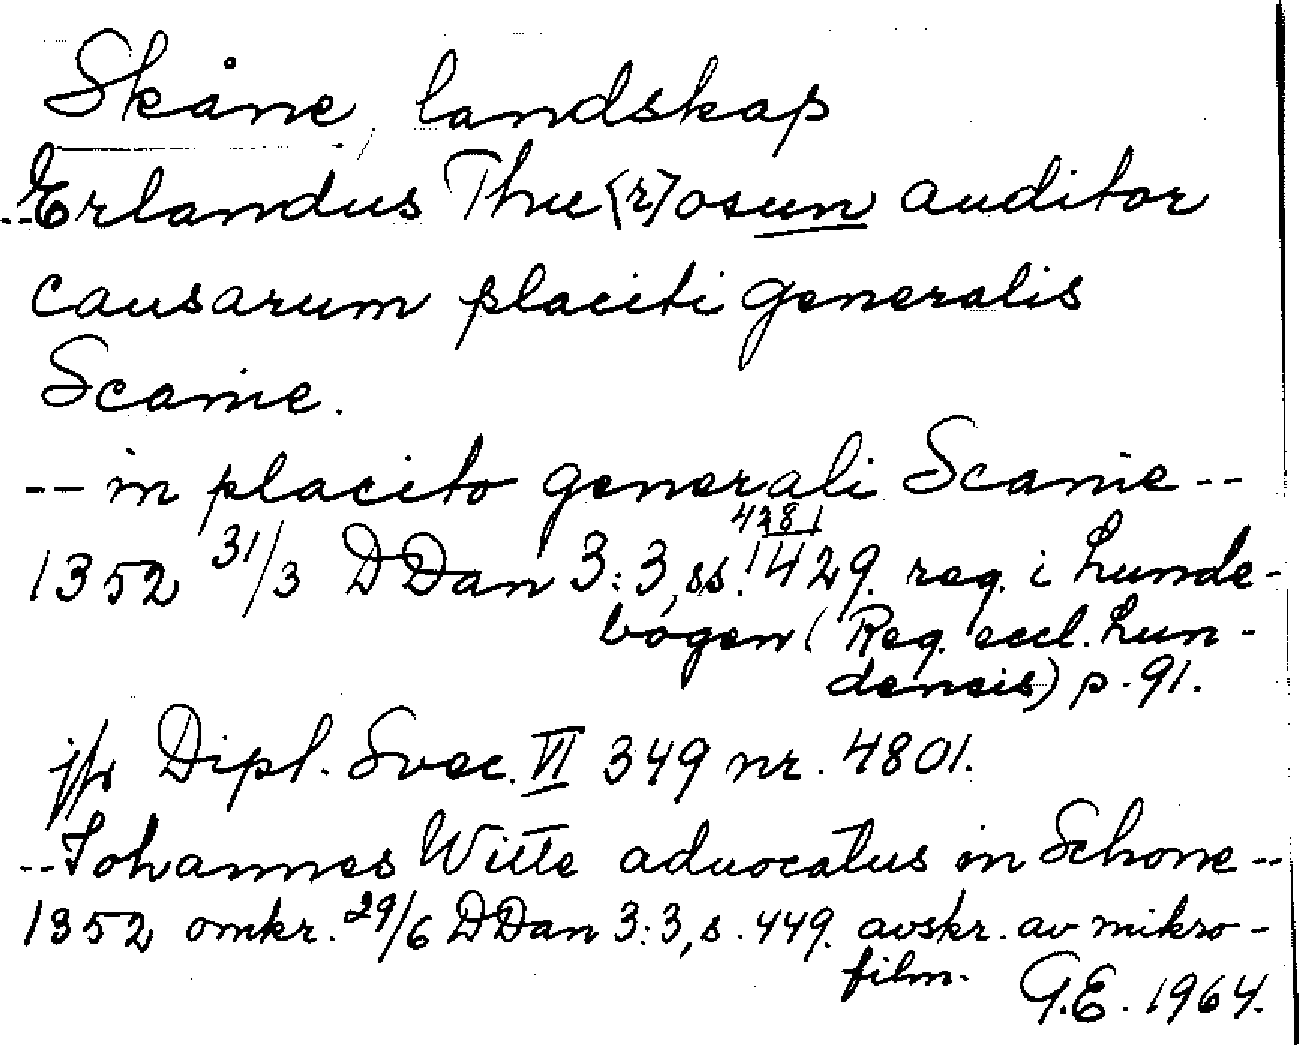 Skåne, landskap
--Erlandus Thue<r>osun auditor
causarum placiti generalis
Scanie.
-- in placito generali Scanie --
1352 31/3 DDan 3:3, ss. 428, 429. reg. i Lunde-
bogen (Reg. eccl. Lun-
densis) p. 91.
jfr Dipl. Svec. VI 349 nr. 4801.
--Johannes Witte aduocatus in Schone--
1352 omkr. 29/6 DDan 3:3, s. 449. avskr. av mikro-
film. G.E. 1964.